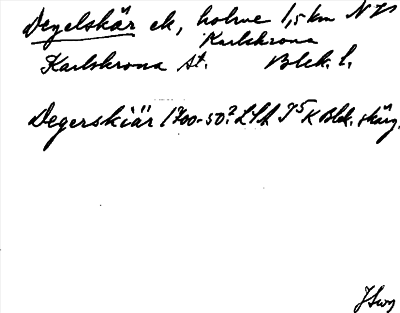 Degelskär ek, holme 1,5 km N
Karlskrona
Karlskrona st. Blek. l.
Degerskiär 1700-50? LSA I 5 K Blek. skärg.